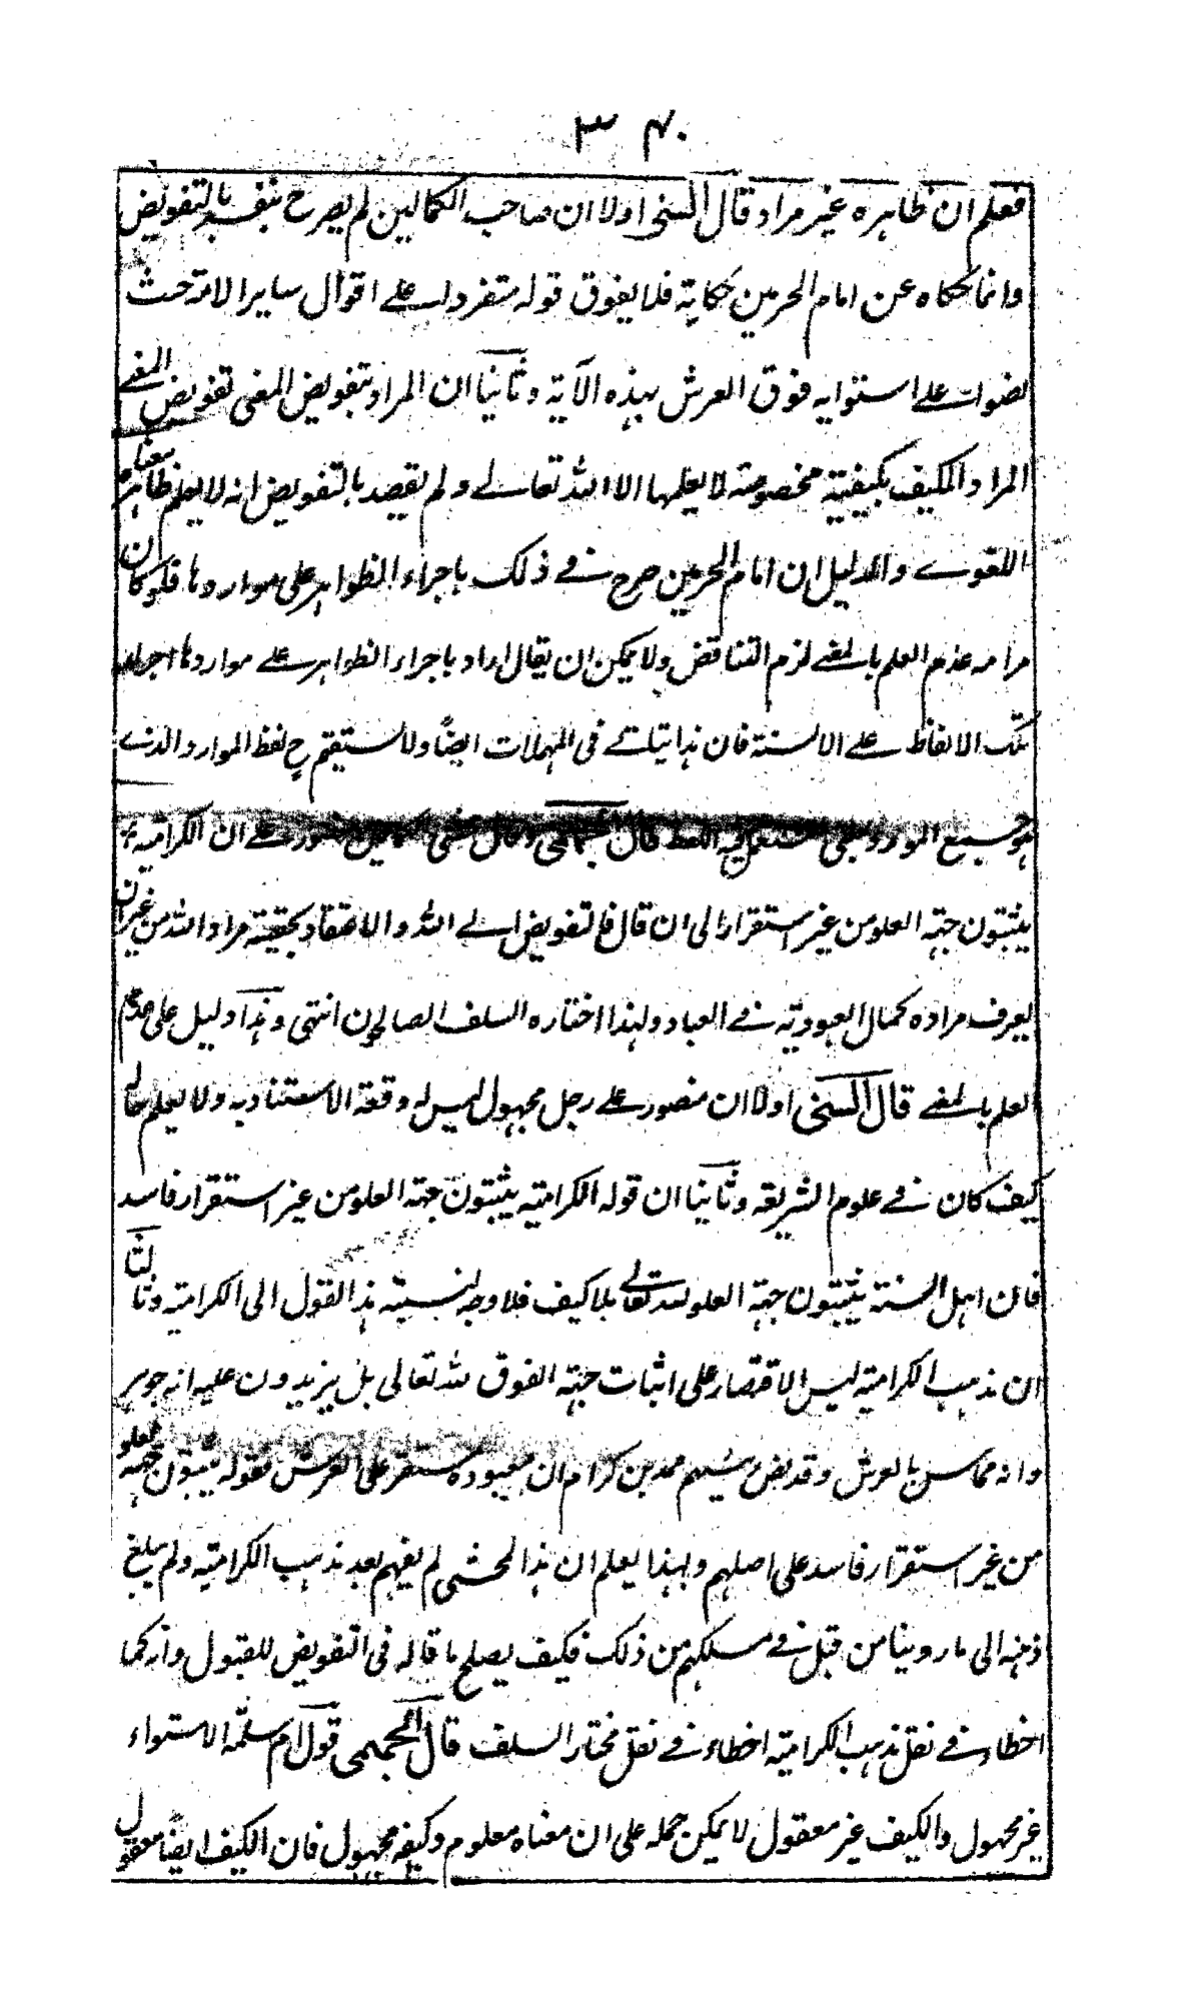 ٣٤٠
فعلم ان ظاهره غير مراد قال السنی اولا ان صاحب الكمالين لم يصرح بنفسه بالتفويض
وانما حكاه عن امام الحرمين حكاية فلا يفوق قوله متفردا على اقوال ساير الائمة حيث
نصوا على استوايه فوق العرش بهذه الآية وثانيا ان المراد بتفويض المعنى تفويض المعنى
المراد المكيف بكيفية مخصوصة لا يعلمها الا الله تعالى ولم يقصد بالتفويض انه لا يعلم ظاهر معناه
اللغوي والدليل ان امام الحرمين صرح في ذلك باجراء الظواهر على مواردها فلو كان
مرامه عدم العلم بالمعنى لزم التناقض ولا يمكن ان يقال اراد باجراء الظواهر على مواردها اجراء
تلك الالفاظ على الالسنة فان هذا يتاتى في المهملات ايضا ولا يستقيم ح لفظ الموارد الذي
هو جميع المورد فيه اللفظ قال الجهمی وقال محشی الكمالين منصور على ان الكرامية
يثبتون جهة العلو من غير استقرار الى ان قال فالتفويض الى الله والاعتقاد بحقيقة مراد الله من غير ان
يعرف مراده كمال العبودية في العباد ولهذا اختاره السلف الصالحون انتهى وهذا دليل على عدم
العلم بالمعنى قال السنی اولا ان منصور على رجل مجهول ليس له وقعة الاستناد به ولا يعلم حاله
كيف كان في علوم الشريعة وثانيا ان قوله الكرامية يثبتون جهة العلو من غير استقرار فاسد
فان اهل السنة يثبتون جهة العلو لله تعالى بلا كيف فلا وجه لنسبة هذا القول الى الكرامية وثالثا
ان مذهب الكرامية ليس الاقتصار على اثبات جهة الفوق لله تعالى بل يزيدون عليه انه جوهر
وانه مماس بالعرش وقد نص رئيسهم محمد بن كرام ان معبوده مستقر على العرش فقوله يثبتون جهة العلو
من غير استقرار فاسد على اصلهم وبهذا يعلم ان هذا المحشی لم يفهم بعد مذهب الكرامية ولم يبلغ
ذهنه الى ما روينا من قبل في مسلكهم من ذلك فكيف يصلح ما قاله في التفويض للقبول وانه كما
اخطاء في نقل مذهب الكرامية اخطاء في نقل مختار السلف قال الجهمی قول ام سلمة الاستواء
غير مجهول والكيف غير معقول لا يمكن حمله على ان معناه معلوم وكيفه مجهول فان الكيف ايضا معقول